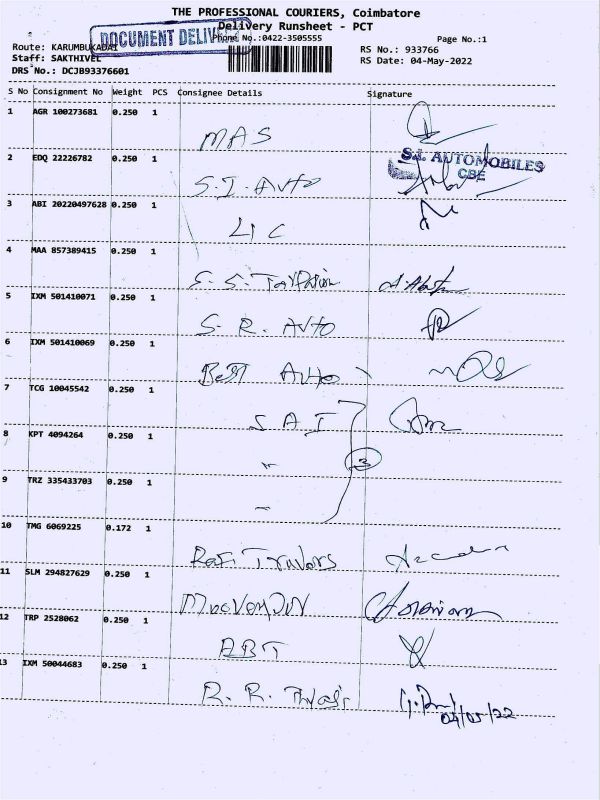 THE PROFESSIONAL COURIERS, Coimbatore
Delivery Runsheet - PCT
DOCUMENT DELIV
Phone No.:0422-3505555
Page No.:1
Route: KARUMBUKADAI
RS No.: 933766
Staff: SAKTHIVEL
RS Date: 04-May-2022
DRS No.: DCJB93376601
S No Consignment No Weight PCS Consignee Details Signature
1 AGR 100273681 0.250 1
MAS
2 EDQ 22226782 0.250 1
S.I. AUTOMOBILES
CBE
S.I. Auto
3 ABI 20220497628 0.250 1
LIC
4 MAA 857389415 0.250 1
S. S.
5 IXM 501410071 0.250 1
S. R. Auto
6 IXM 501410069 0.250 1
Best Auto
7 TCG 10045542 0.250 1
S A I
8 KPT 4094264 0.250 1
"
3
9 TRZ 335433703 0.250 1
10 TMG 6069225 0.172 1
11 SLM 294827629 0.250 1
12 TRP 2528062 0.250 1
ABT
13 IXM 50044683 0.250 1
R. R.
04/05/22